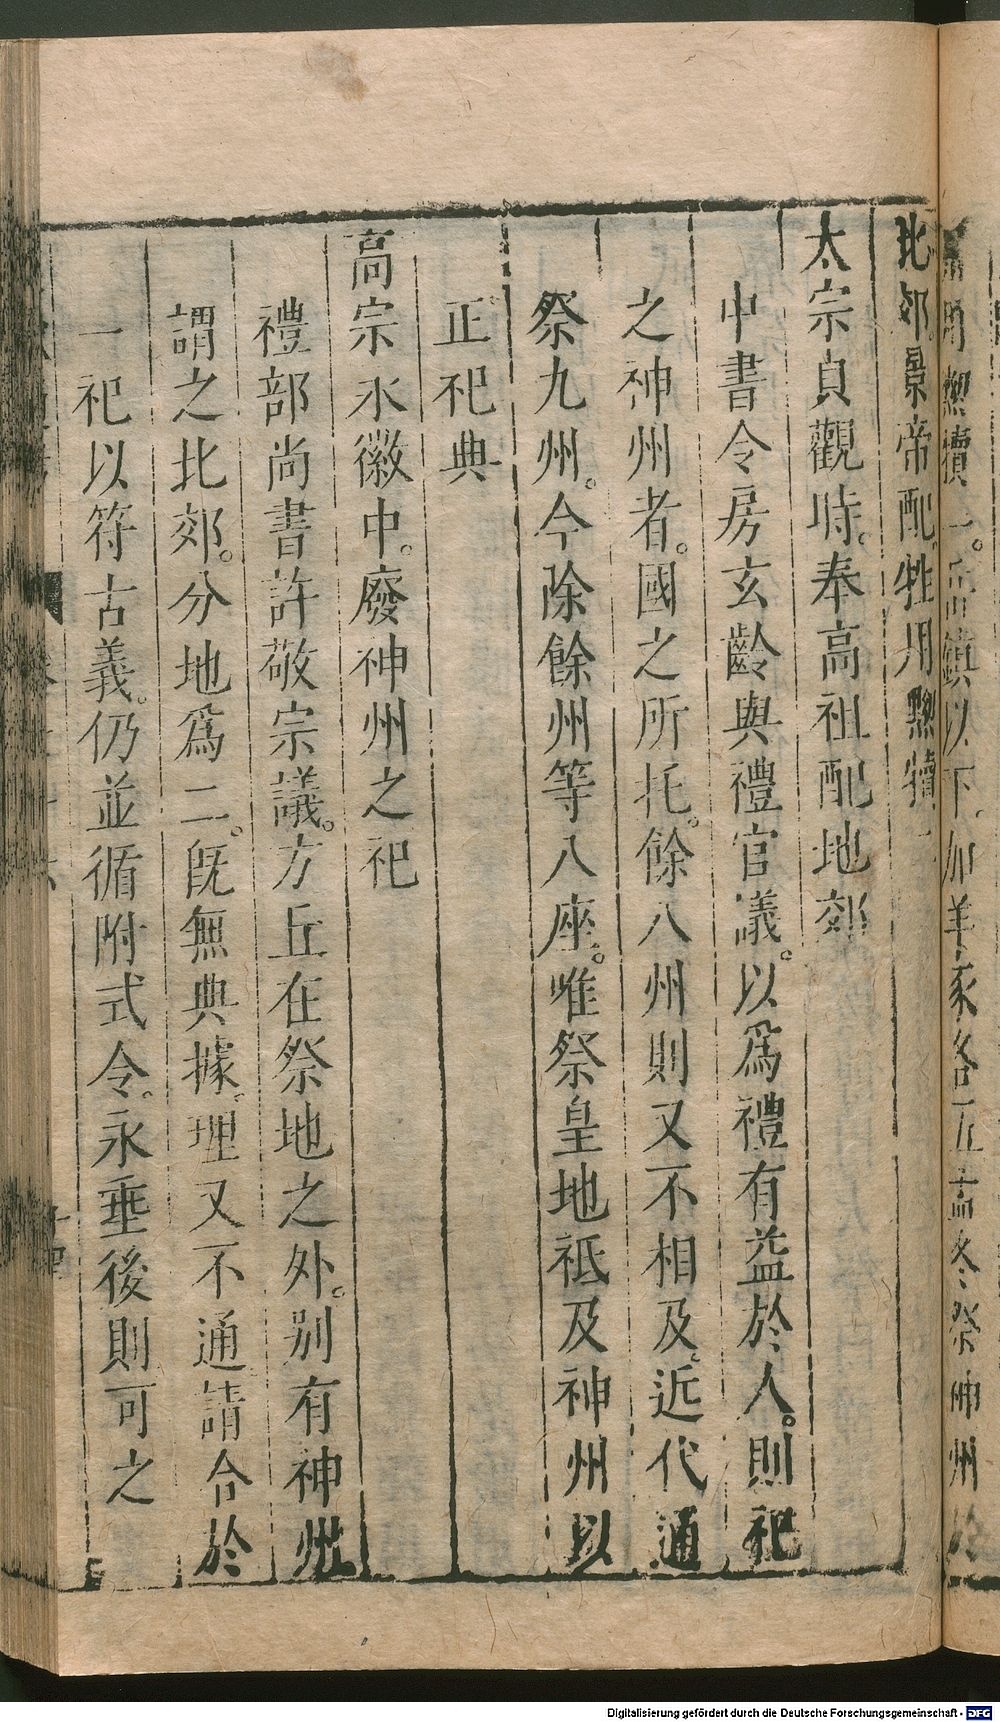 用黝犢一。岳鎮以下。加羊豕各五。孟冬祭神州於
北郊。景帝配。牲用黝犢一
太宗貞觀時。奉高祖配地郊
中書令房玄齡與禮官議。以爲禮有益於人。則祀
之神州者。國之所托。餘八州則又不相及。近代通
祭九州。今除餘州等八座。唯祭皇地祇及神州以
正祀典
高宗永徽中。廢神州之祀
禮部尚書許敬宗議。方丘在祭地之外。别有神州
謂之北郊。分地爲二。既無典據。理又不通。請合於
一祀以符古義。仍並循附式令。永垂後則可之
Digitalisierung gefördert durch die Deutsche Forschungsgemeinschaft - DFG